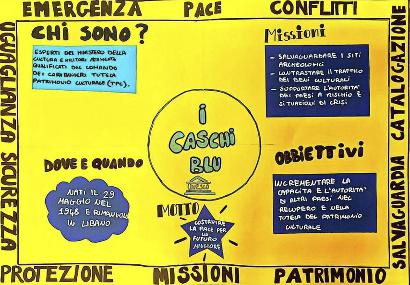 EMERGENZA PACE CONFLITTI
UGUAGLIANZA SICUREZZA
CATALOGAZIONE
SALVAGUARDIA
CHI SONO?
ESPERTI DEL MINISTERO DELLA
CULTURA E MILITARI
QUALIFICATI DEL COMANDO
DEI CARABINIERI TUTELA
PATRIMONIO CULTURALE (TPC).
Missioni
- SALVAGUARDARE I SITI
ARCHEOLOGICI
- CONTRASTARE IL TRAFFICO
DEI BENI CULTURALI
- SUPPORTARE L'AUTORITÀ
DEI PAESI A RISCHIO E
SITUAZIONI DI CRISI.
I
CASCHI
BLU
DOVE E QUANDO
NATI IL 29
MAGGIO NEL
1948 E
IN LIBANO
MOTTO
COSTRUIRE
LA PACE PER
FUTURO
MIGLIORE
OBBIETTIVI
INCREMENTARE LA
CAPACITÀ E L'AUTORITÀ
DI ALTRI PAESI NEL
RECUPERO E NELLA
TUTELA DEL PATRIMONIO
CULTURALE
PROTEZIONE MISSIONI PATRIMONIO